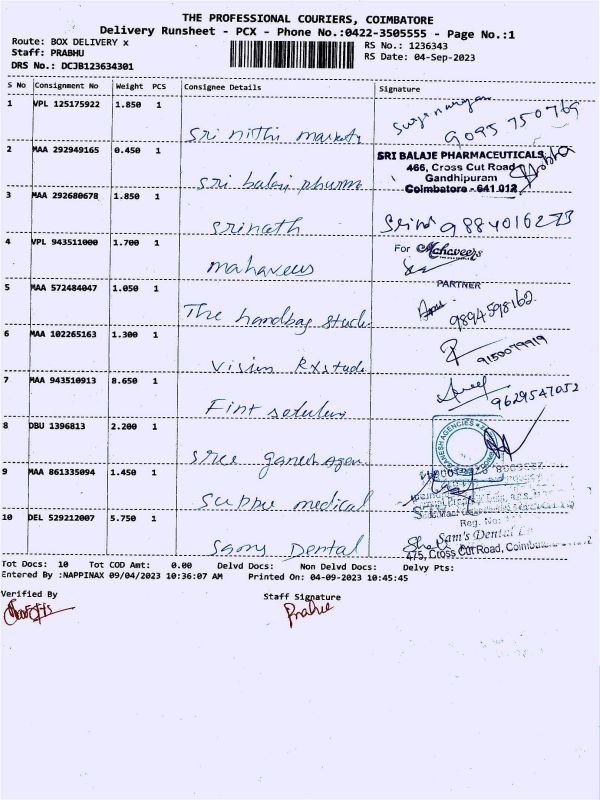 THE PROFESSIONAL COURIERS, COIMBATORE
Delivery Runsheet - PCX - Phone No.:0422-3505555 - Page No.:1
Route: BOX DELIVERY x
RS No.: 1236343
Staff: PRABHU
RS Date: 04-Sep-2023
DRS No.: DCJB123634301
S No Consignment No Weight PCS Consignee Details Signature
1 VPL 125175922 1.850 1
Sri nithi 9095 750769
2 MAA 292949165 0.450 1
SRI BALAJE PHARMACEUTICALS,
466, Cross Cut Road
Gandhipuram
Coimbatore - 641 012
Sri balaji pharma
3 MAA 292680678 1.850 1
Srinath 9884016273
4 VPL 943511000 1.700 1
For Mahaveers
mahaveers
PARTNER
5 MAA 572484047 1.050 1
The handbag 9894598162
6 MAA 102265163 1.300 1
9150079919
Vision Rx
7 MAA 943510913 8.650 1
9629547052
8 DBU 1396813 2.200 1
Sree ganesh agen
9 MAA 861335094 1.450 1
Suppu medical
10 DEL 529212007 5.750 1
Reg. No:
Sam's Dental
Sams Dental
475, Cross Cut Road,
Tot Docs: 10 Tot COD Amt: 0.00 Delvd Docs: Non Delvd Docs: Delvy Pts:
Entered By :NAPPINAX 09/04/2023 10:36:07 AM Printed On: 04-09-2023 10:45:45
Verified By Staff Signature